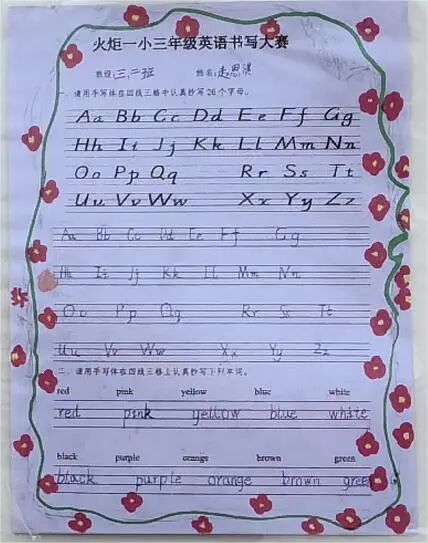 火炬一小三年级英语书写大赛
班级三、二班 姓名:
一、请用手写体在四线三格中认真抄写26个字母。
Aa Bb Cc Dd Ee Ff Gg
Hh Ii Jj Kk Ll Mm Nn
Oo Pp Qq Rr Ss Tt
Uu Vv Ww Xx Yy Zz
Aa Bb Cc Dd Ee Ff Gg
Hh Ii Jj Kk Ll Mm Nn
Oo Pp Qq Rr Ss Tt
Uu Vv Ww Xx Yy Zz
二、请用手写体在四线三格上认真抄写下列单词。
red pink yellow blue white
red pink yellow blue white
black purple orange brown green
black purple orange brown green